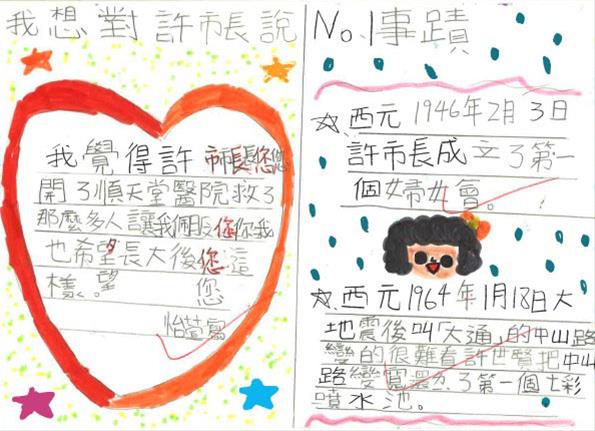 我想對許市長說
我覺得許市長您
開了順天堂醫院救了
那麼多人讓我佩服您你我
也希望長大後您這
樣。望 您
怡萱寫
No.1事蹟
☆西元1946年2月3日
許市長成立了第一
個婦女會。
☆西元1964年1月18日大
地震後叫「大通」的中山路
變的很難看許世賢把中山
路變寬蓋了第一個七彩
噴水池。